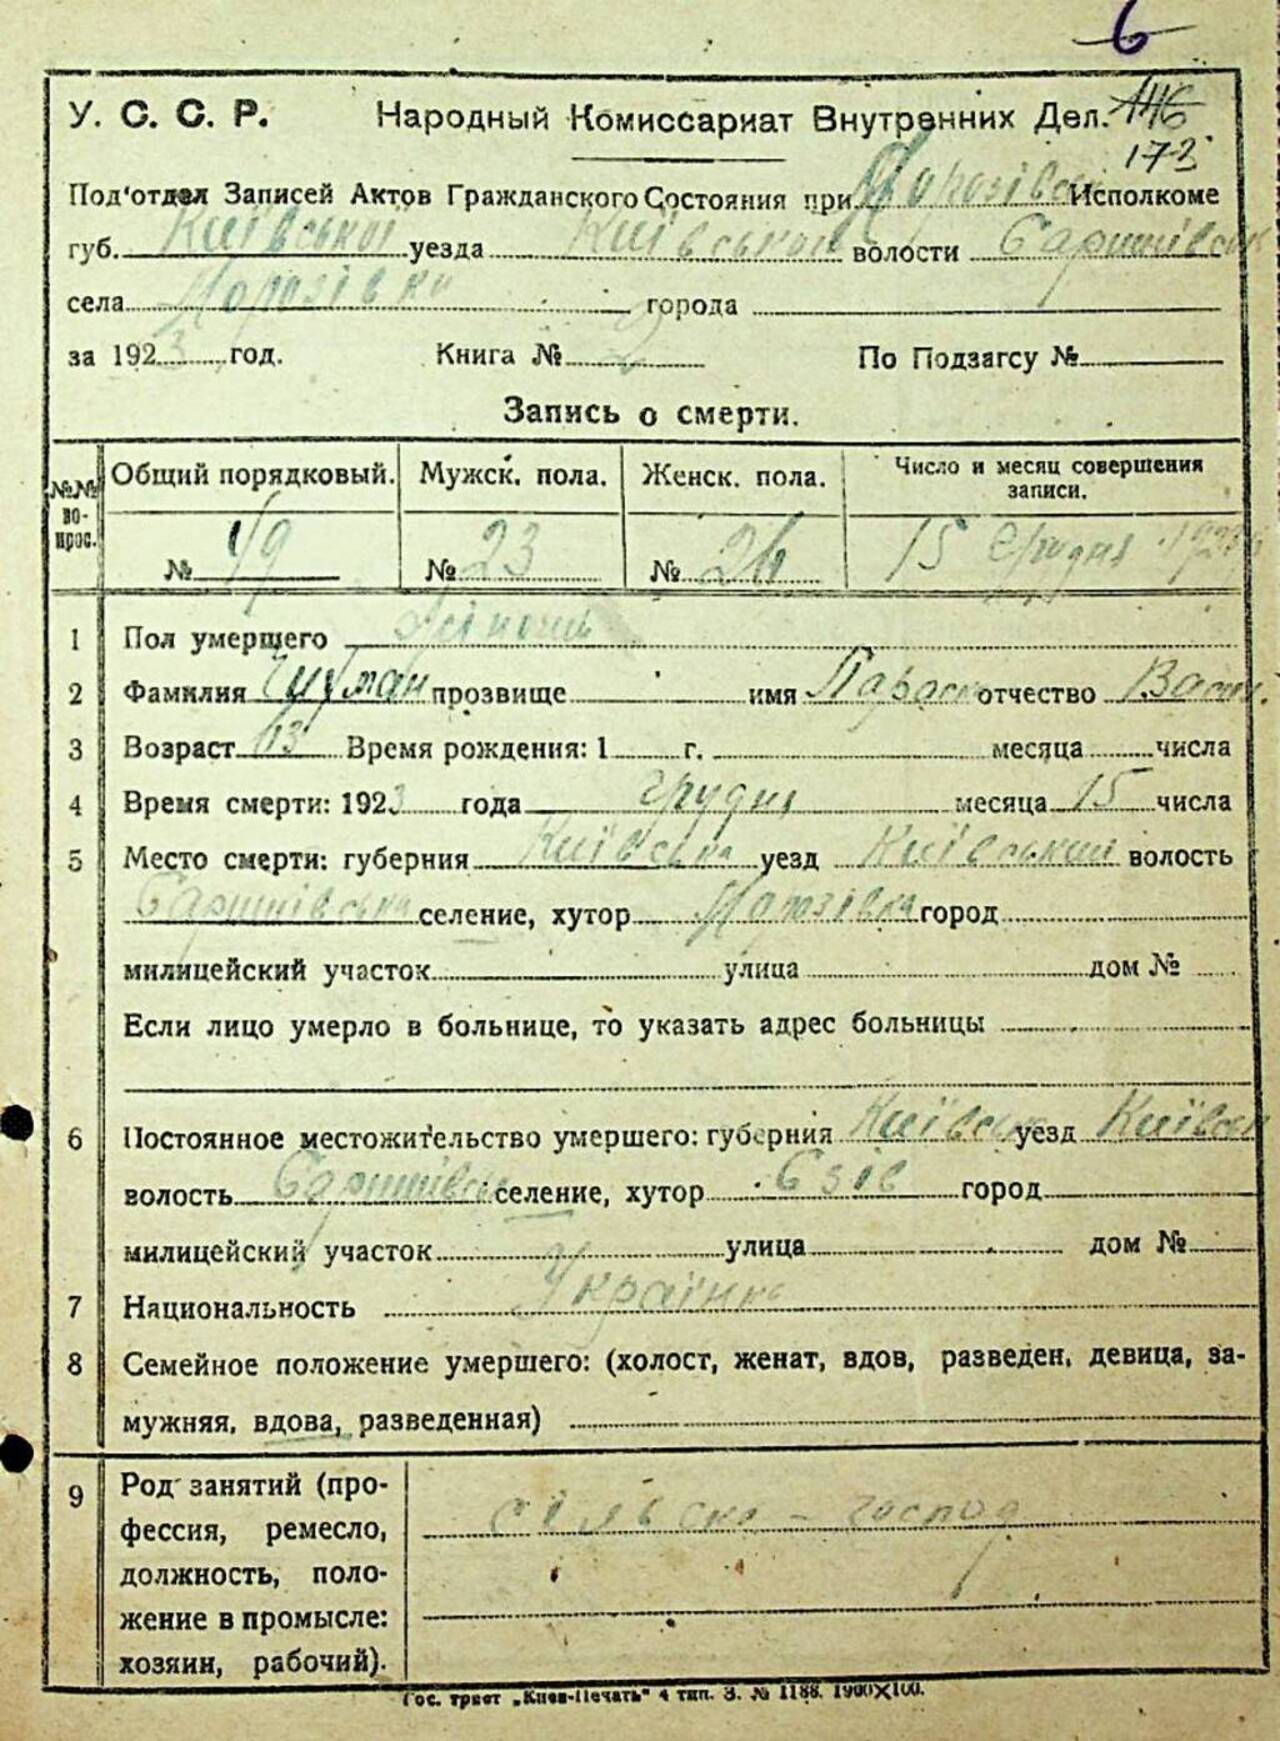 6
У. С. С. Р. Народный Комиссариат Внутренних Дел. 146
173
Под'отдел Записей Актов Гражданского Состояния при Морозівск Исполкоме
губ. Київської уезда Київської волости
села Морозівки города
за 1923 год. Книга № 2 По Подзагсу №
Запись о смерти.
№№ во-прос. Общий порядковый. Мужск. пола. Женск. пола. Число и месяц совершения записи.
№ 49 № 23 № 26 15 Грудня 1923
1 Пол умершего
2 Фамилия прозвище имя Параск отчество Васил.
3 Возраст 63 Время рождения: 1 г. месяца числа
4 Время смерти: 1923 года грудня месяца 15 числа
5 Место смерти: губерния Київська уезд Київський волость
селение, хутор Морозівка город
милицейский участок улица дом №
Если лицо умерло в больнице, то указать адрес больницы
6 Постоянное местожительство умершего: губерния Київськ уезд Київськ
волость селение, хутор город
милицейский участок улица дом №
7 Национальность Українка
8 Семейное положение умершего: (холост, женат, вдов, разведен, девица, за-
мужняя, вдова, разведенная)
9 Род занятий (про-
фессия, ремесло, сільско-господ
должность, поло-
жение в промысле:
хозяин, рабочий).
Гос. трест „Киев-Печать" 4 тип. З. № 1188. 1900×100.